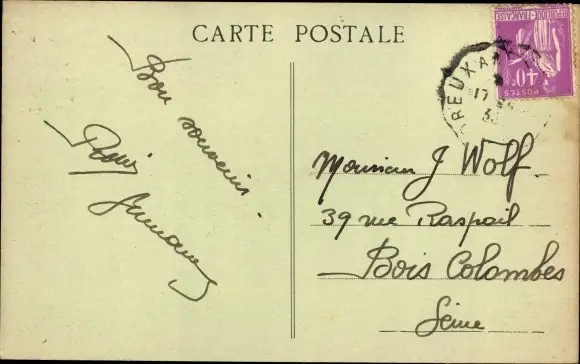 CARTE POSTALE
Bon souvenir.
Monsieur J Wolf.
39 rue Raspail
Bois Colombes
Seine
REPUBLIQUE FRANÇAISE
40c
POSTES
DREUX A
17